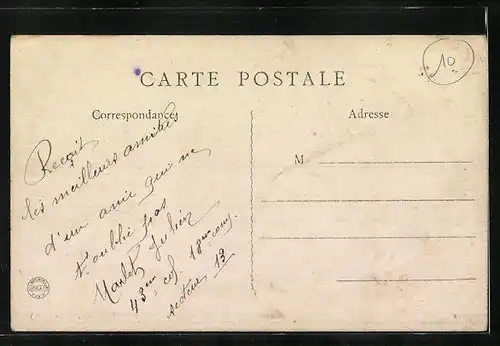 CARTE POSTALE
10
Correspondance
Adresse
M
Reçoit
les meilleurs amitiés
d'un ami qui ne
t'oublie pas
Julien
43me col. 18me comp.
secteur 13